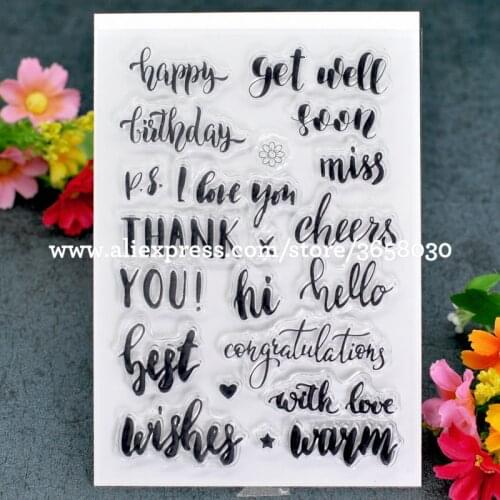 happy
get well
birthday
soon
miss
P.S. I love you
THANK
cheers
www.aliexpress.com/store/3658030
YOU!
hi
hello
best
congratulations
with love
wishes
warm